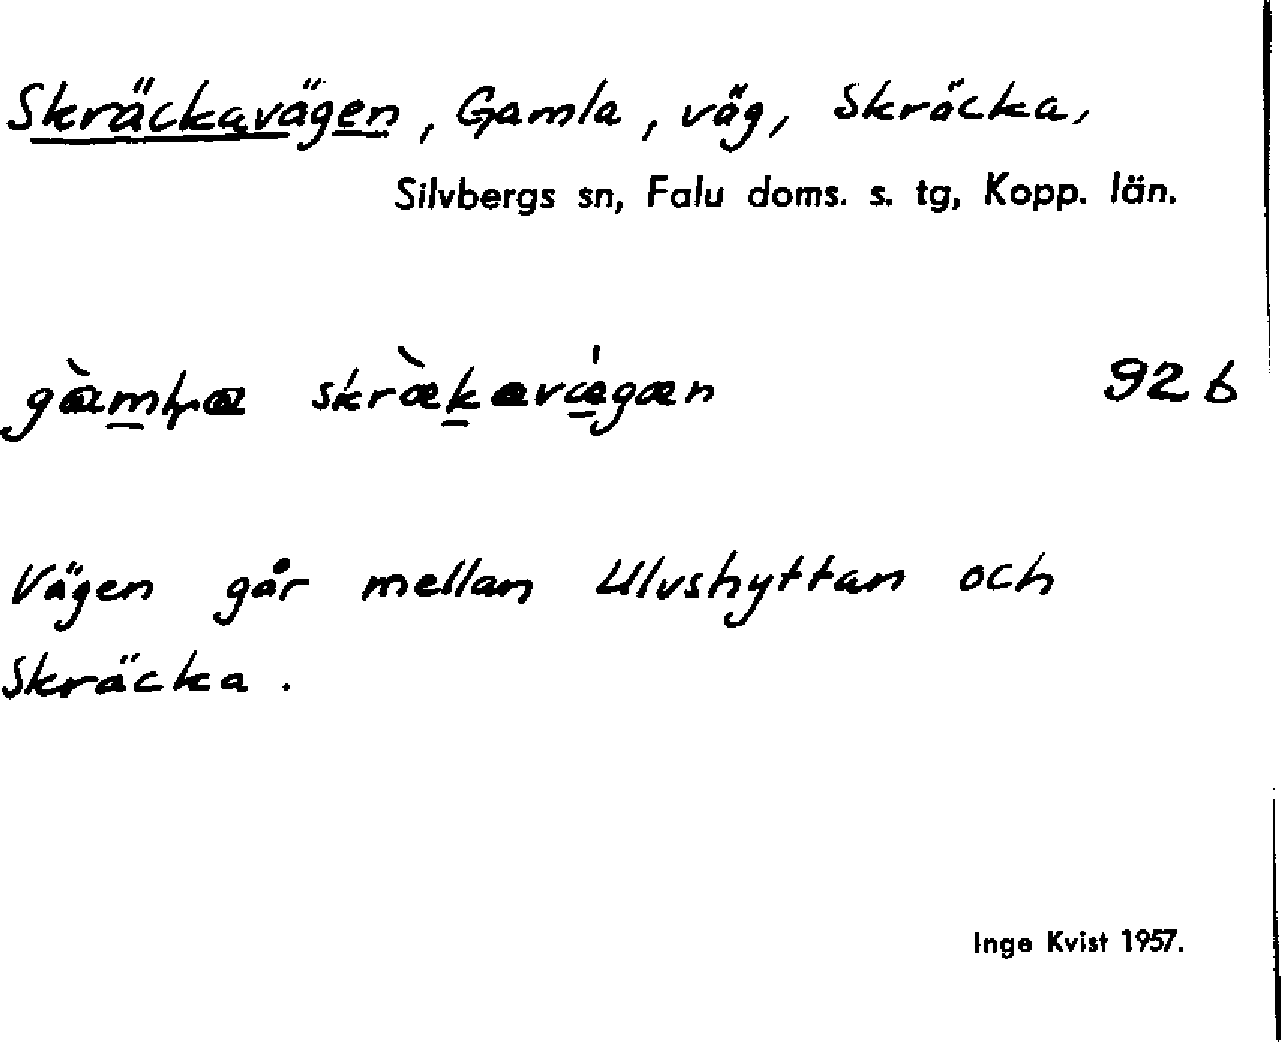 Skräckavägen, Gamla, väg, Skräcka,
Silvbergs sn, Falu doms. s. tg, Kopp. län.
92 b
Vägen går mellan Ulvshyttan och
Skräcka.
Inge Kvist 1957.